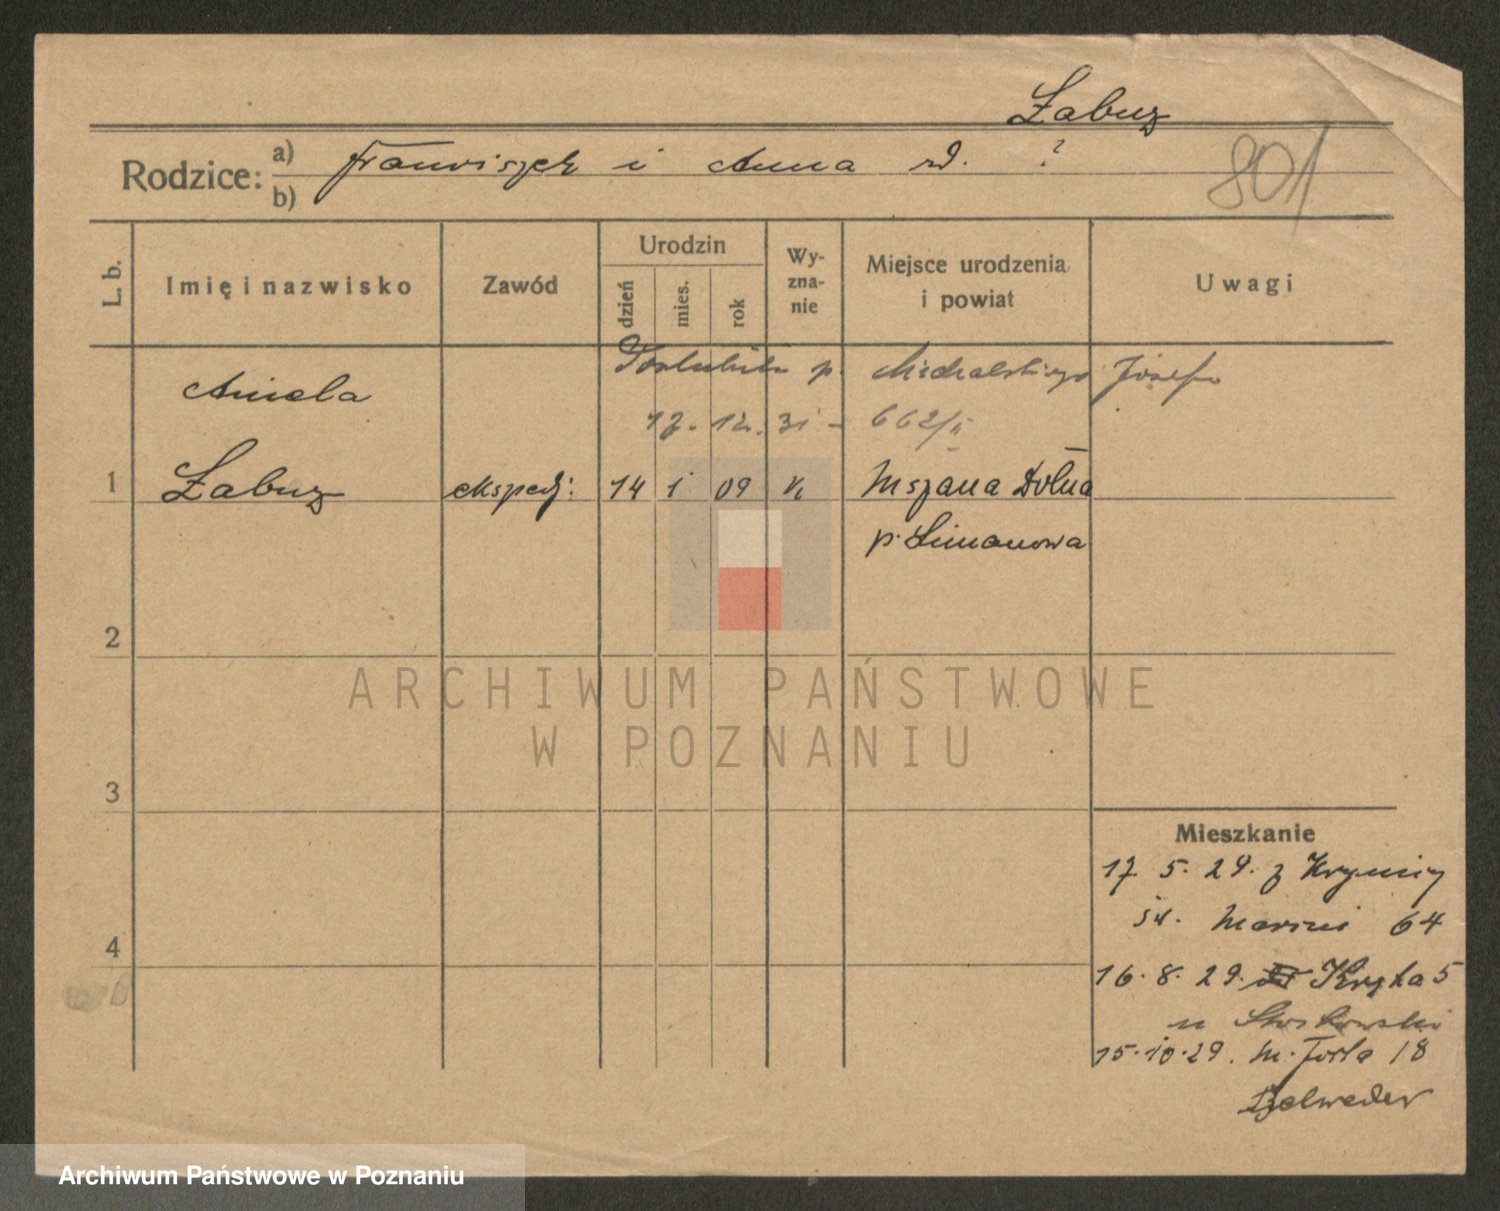 Łabuz
Rodzice: a) Franciszek i Anna zd. ?
b)
801
L. b.
Imię i nazwisko
Zawód
Urodzin
dzień
mies.
rok
Wy-
zna-
nie
Miejsce urodzenia
i powiat
Uwagi
Poślubiła p. Michalskiego Józefa
17. 12. 31 - 662/II
Aniela
1 Łabuz ekspedj: 14 1 09 k Mszana Dolna
p. Limanowa
2
3
4
Mieszkanie
17 5. 29. z Krynicy
św. Marcin 64
16. 8. 29. Kręta 5
u
15.10.29. M. Focha 18
Belweder
ARCHIWUM PAŃSTWOWE
W POZNANIU
Archiwum Państwowe w Poznaniu